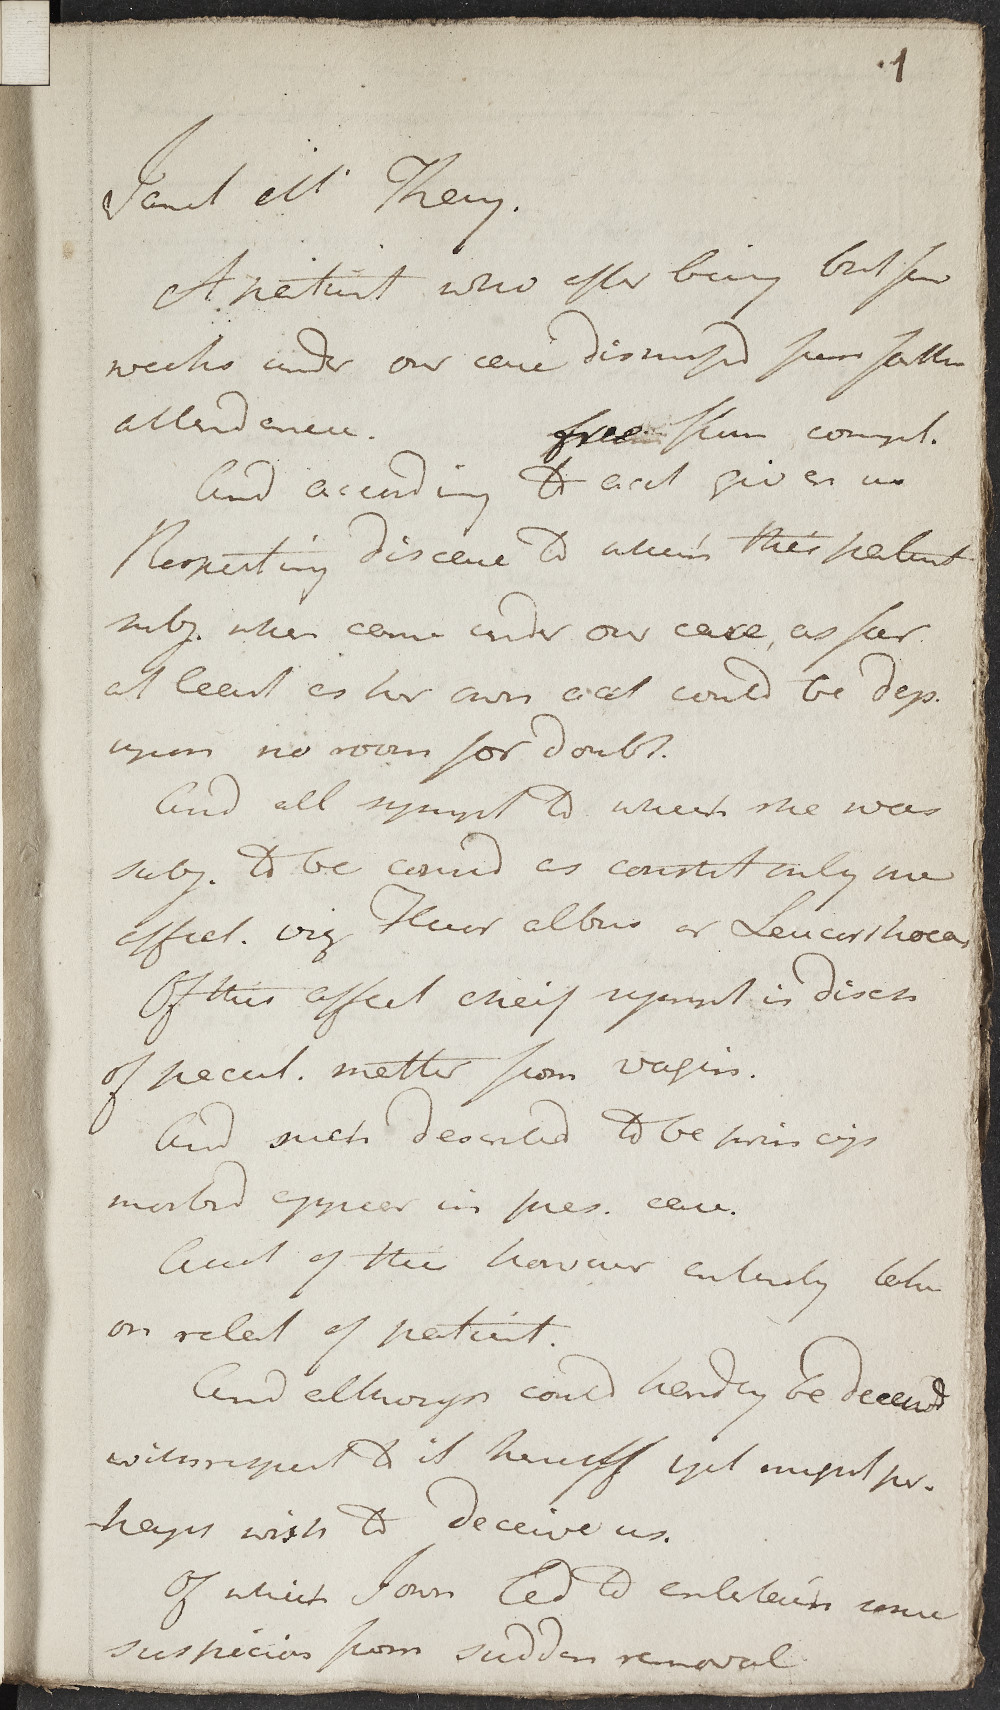 1
Janet Mc
A patient who after being but few
weeks under our care dismissd from farther
attendance. free from compl.
And according to acct given us
Respecting disease to which this patient
subj. when came under our care, as far
at least as her own acct could be dep.
upon no room for doubt.
And all sympt to which she was
subj. to be consid as constit only one
affect. viz Fluor albus or Leucorrhoea
Of this affect cheif sympt is disch
of pecul. matter from vagin.
And such described to be princip
morbid appear in pres. case.
Acct of this however entirely taken
on relat of patient.
And although could hardly be deceivd
with respect to it herself yet might per-
haps wish to deceive us.
Of which I own led to entertain some
suspicion from sudden removal